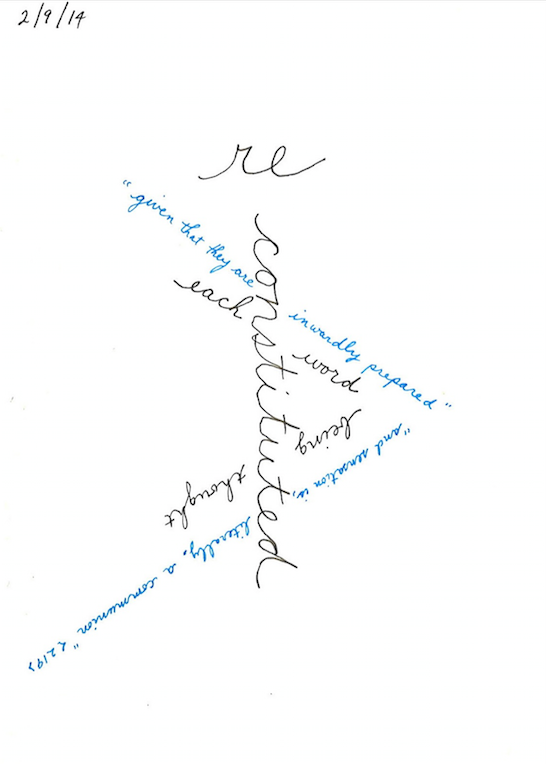 2/9/14
re
constituted
"given that they are
inwardly prepared"
each
word
being
thought
"and sensation is,
literally, a communion" <219>